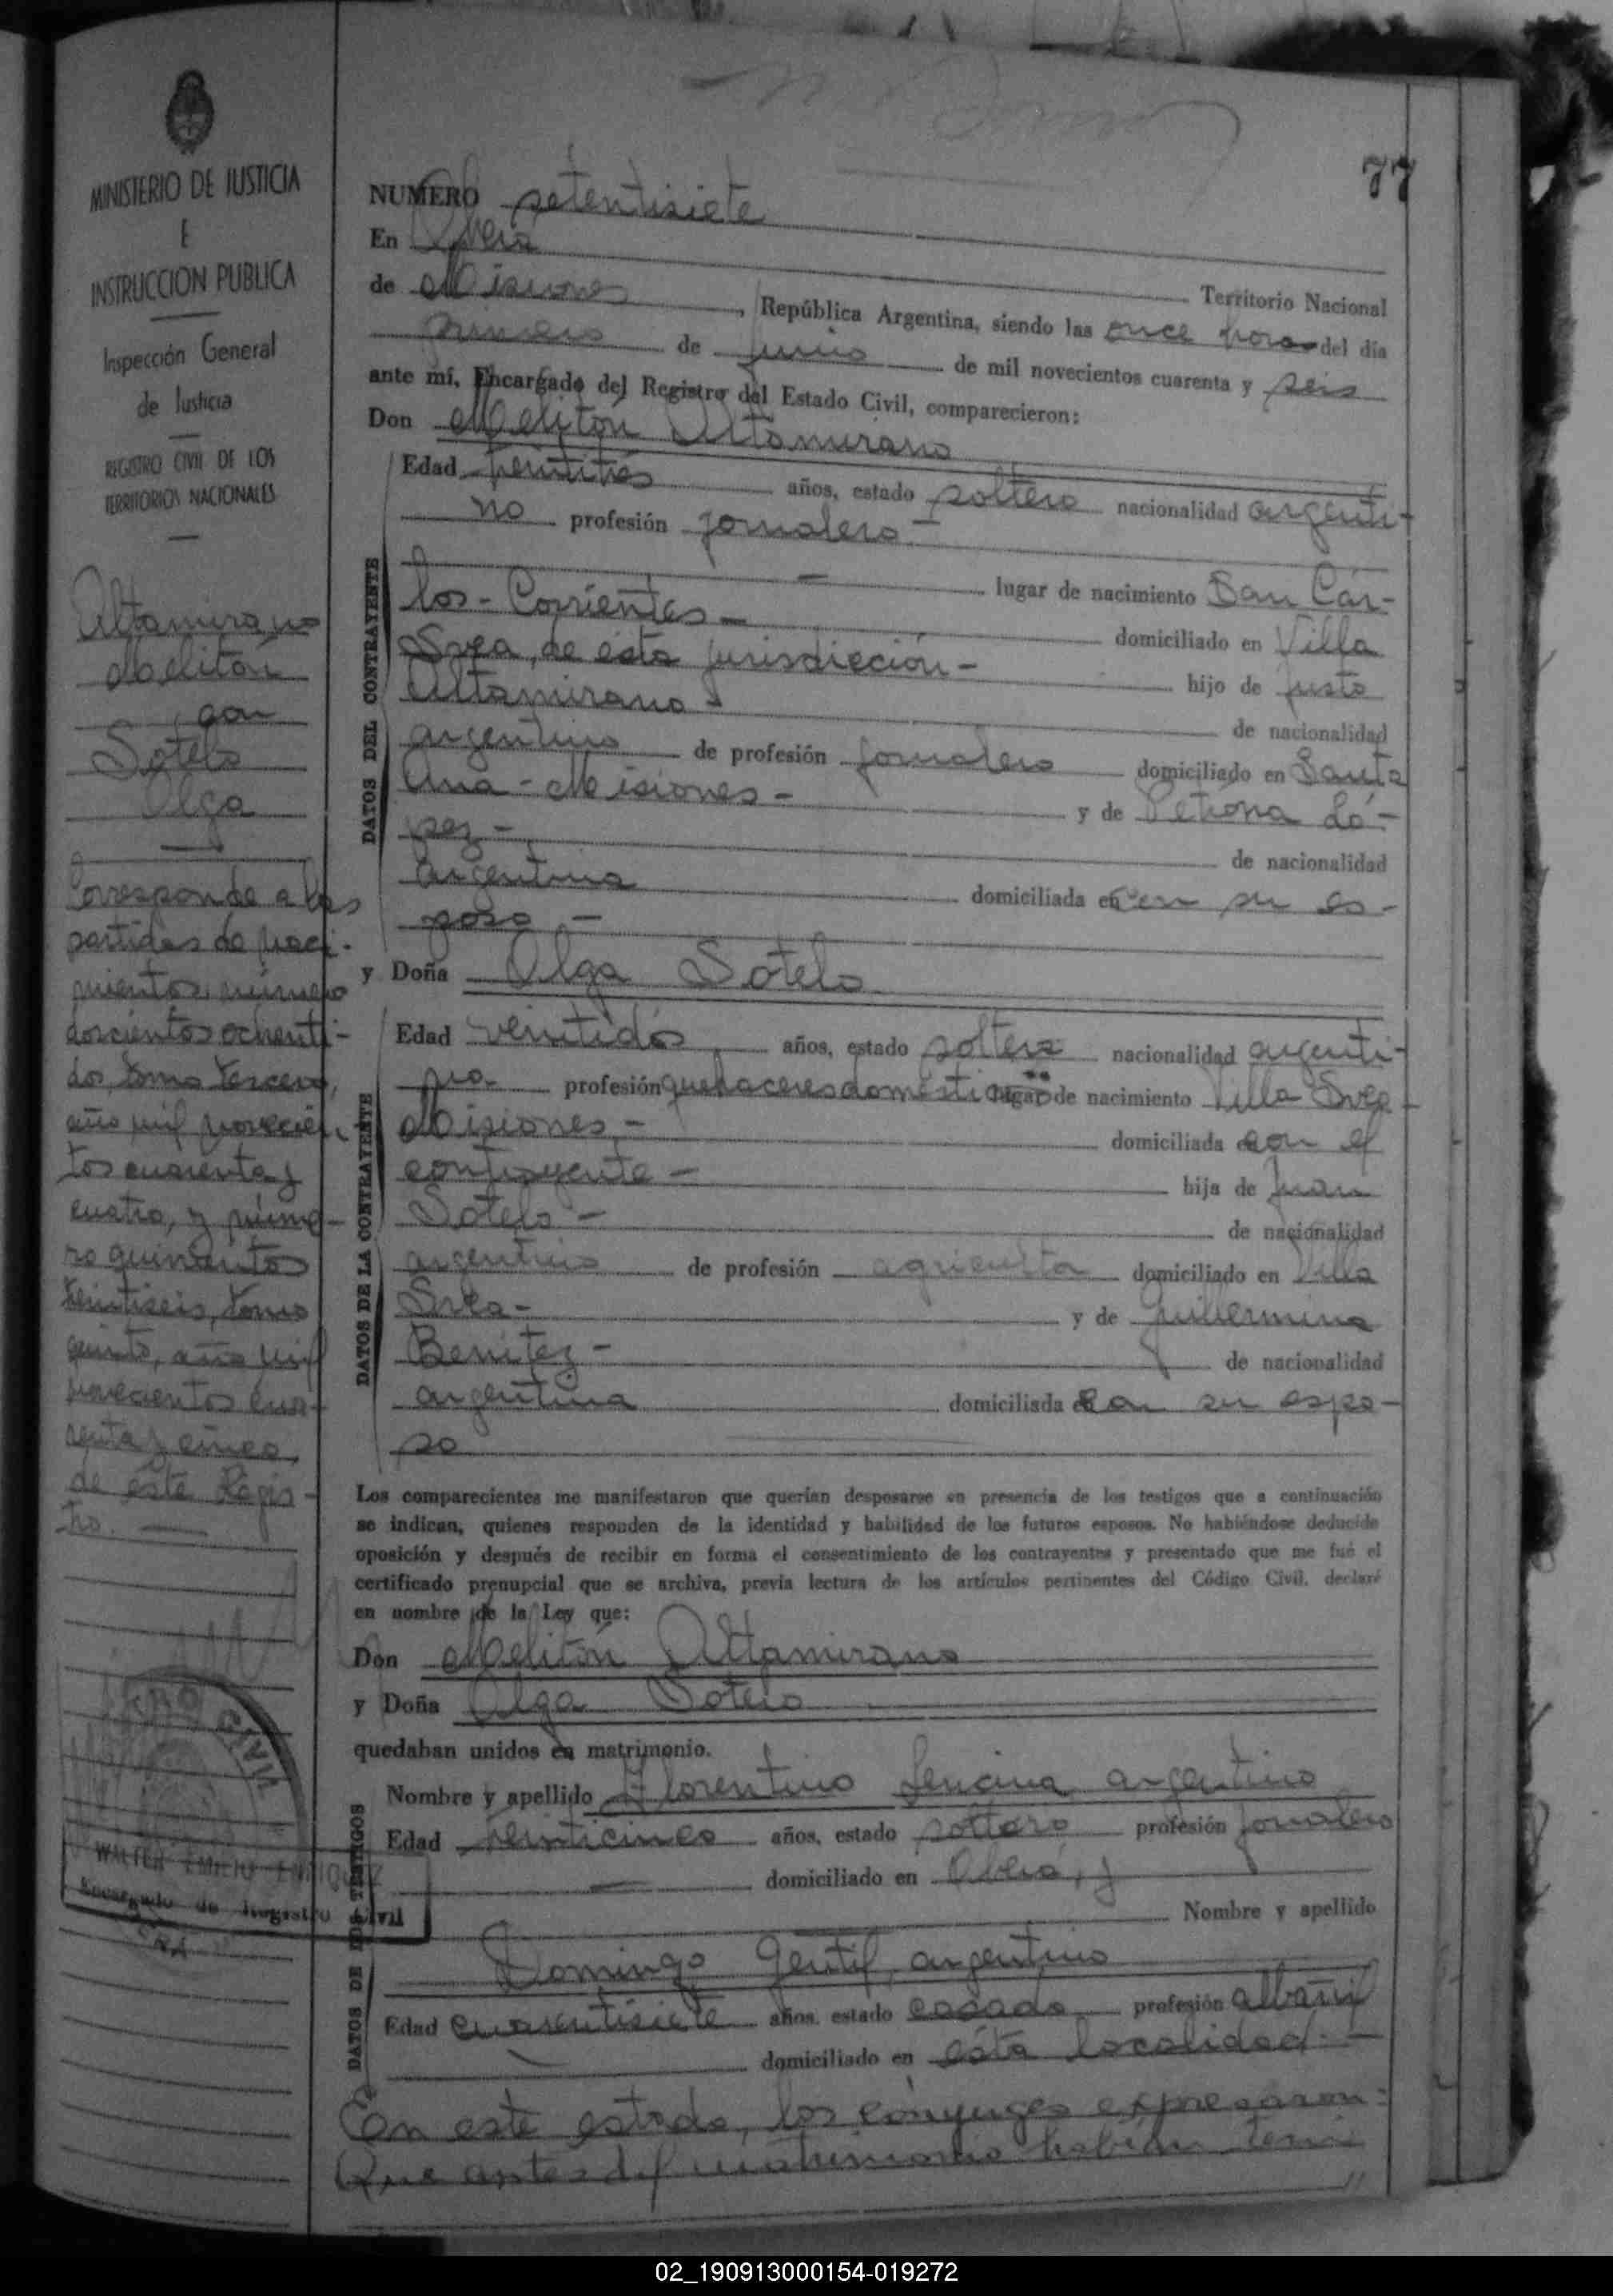 77
MINISTERIO DE JUSTICIA
E
INSTRUCCION PUBLICA
Inspección General
de Justicia
REGISTRO CIVIL DE LOS
TERRITORIOS NACIONALES
Altamirano
Melitón
con
Sotelo
Olga
Corresponde a las
partidas de naci-
mientos, número
doscientos ochenti-
dos, tomo tercero,
año mil novecien-
tos cuarenta y
cuatro, y núme-
ro quinientos
veintiseis, tomo
quinto, año mil
novecientos cua-
renta y cinco,
de este Regis-
tro.
NUMERO setentisiete
En Oberá
Territorio Nacional
de Misiones, República Argentina, siendo las once horas del día
primero de junio de mil novecientos cuarenta y seis
ante mí, Encargado del Registro del Estado Civil, comparecieron:
Don Melitón Altamirano
DATOS DEL CONTRAYENTE
Edad veintitrés años, estado soltero nacionalidad argenti-
no profesión jornalero -
lugar de nacimiento San Car-
los - Corrientes - domiciliado en Villa
Svea, de esta jurisdiccion - hijo de Justo
Altamirano - de nacionalidad
argentino de profesión jornalero domiciliado en Santa
Ana - Misiones - y de Petrona Ló-
pez - de nacionalidad
argentina domiciliada en con su es-
poso -
y Doña Olga Sotelo
DATOS DE LA CONTRAYENTE
Edad veintidós años, estado soltera nacionalidad argenti-
na - profesión quehaceres domésticos lugar de nacimiento Villa Svea
Misiones - domiciliada con el
contrayente - hija de Juan
Sotelo - de nacionalidad
argentino de profesión agricultor domiciliado en Villa
Svea - y de Guillermina
Benitez - de nacionalidad
argentina domiciliada con su espo-
so
Los comparecientes me manifestaron que querían desposarse en presencia de los testigos que a continuación
se indican, quienes responden de la identidad y habilidad de los futuros esposos. No habiéndose deducido
oposición y después de recibir en forma el consentimiento de los contrayentes y presentado que me fué el
certificado prenupcial que se archiva, previa lectura de los artículos pertinentes del Código Civil, declaré
en nombre de la Ley que:
Don Melitón Altamirano
y Doña Olga Sotelo
quedaban unidos en matrimonio.
DATOS DE LOS TESTIGOS
Nombre y apellido Florentino Lencina argentino
Edad veinticinco años, estado soltero profesión jornalero
domiciliado en Oberá, y
Nombre y apellido
Domingo Gentil, argentino
Edad cuarentisiete años, estado casado profesión albañil
domiciliado en esta localidad. -
En este estado, los cónyuges expresaron:
Que antes del matrimonio habían teni
//
WALTER EMILIO ENRIQUEZ
Encargado de Registro Civil
02_190913000154-019272